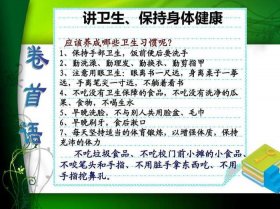 讲卫生、保持身体健康
卷首语
应该养成哪些卫生习惯呢?
1、保持手部卫生,饭前便后要洗手
2、勤洗澡、勤理发、勤换衣、勤剪指甲
3、注意用眼卫生:眼离书一尺远,身离桌子一拳
远,手离笔尖一寸远,不躺着看书
4、不吃没有卫生保障的食品,不吃没有洗净的瓜
果、食物,不喝生水
5、早晚洗脸,不与别人共用脸盆、毛巾
6、早晚刷牙,食后漱口
7、每天坚持适当的体育锻炼,以增强体质,保持
充沛的体力
不吃垃圾食品、不吃校门前小摊的小食品、
不咬笔头和手指、不用脏手拿东西吃、不用
手指挖鼻孔。